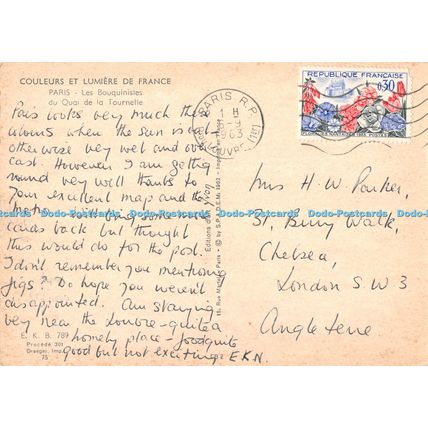 COULEURS ET LUMIÈRE DE FRANCE
PARIS - Les Bouquinistes
du Quai de la Tournelle
Paris looks very much these
colours when the sun is out
otherwise very wet and over
cast. However I am getting
round very well thanks to
your excellent map and the
Metro.
cards back but thought
this would do for the post.
I don't remember you mentioning
figs? Do hope you weren't
disappointed. Am staying
very near the Louvre - quite a
homely place - food quite
good but not exciting. E.K.N.
E. K. B. 789
Procédé 301
Draeger, Imp.
75
Editions d'Art Yvon
15, Rue Martel, Paris
PARIS R.P.
1 H
1963
RÉPUBLIQUE FRANÇAISE
0,30
POSTES
Mrs H. W. Parker,
31, Bury Walk,
Chelsea,
London S.W 3
Angleterre
Dodo-Postcards Dodo-Postcards Dodo-Postcards Dodo-Postcards Dodo-Postcards